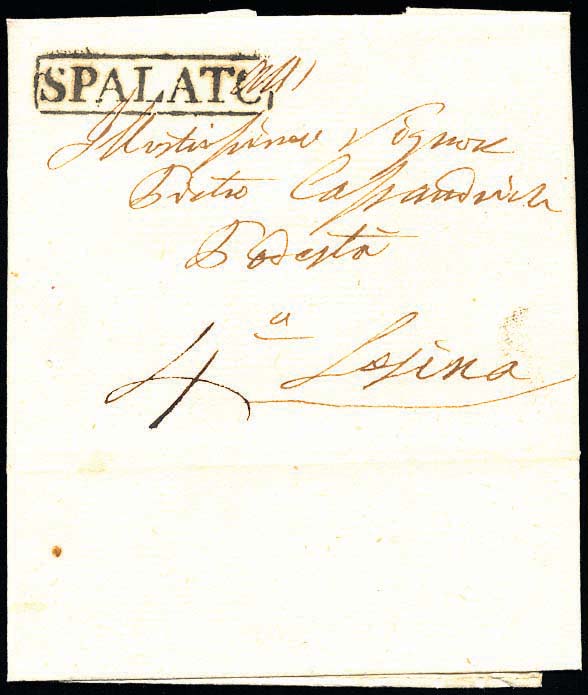 SPALATO
Illustrissimo Signor
Pietro Cassandrich
Podestà
a
4 Lesina